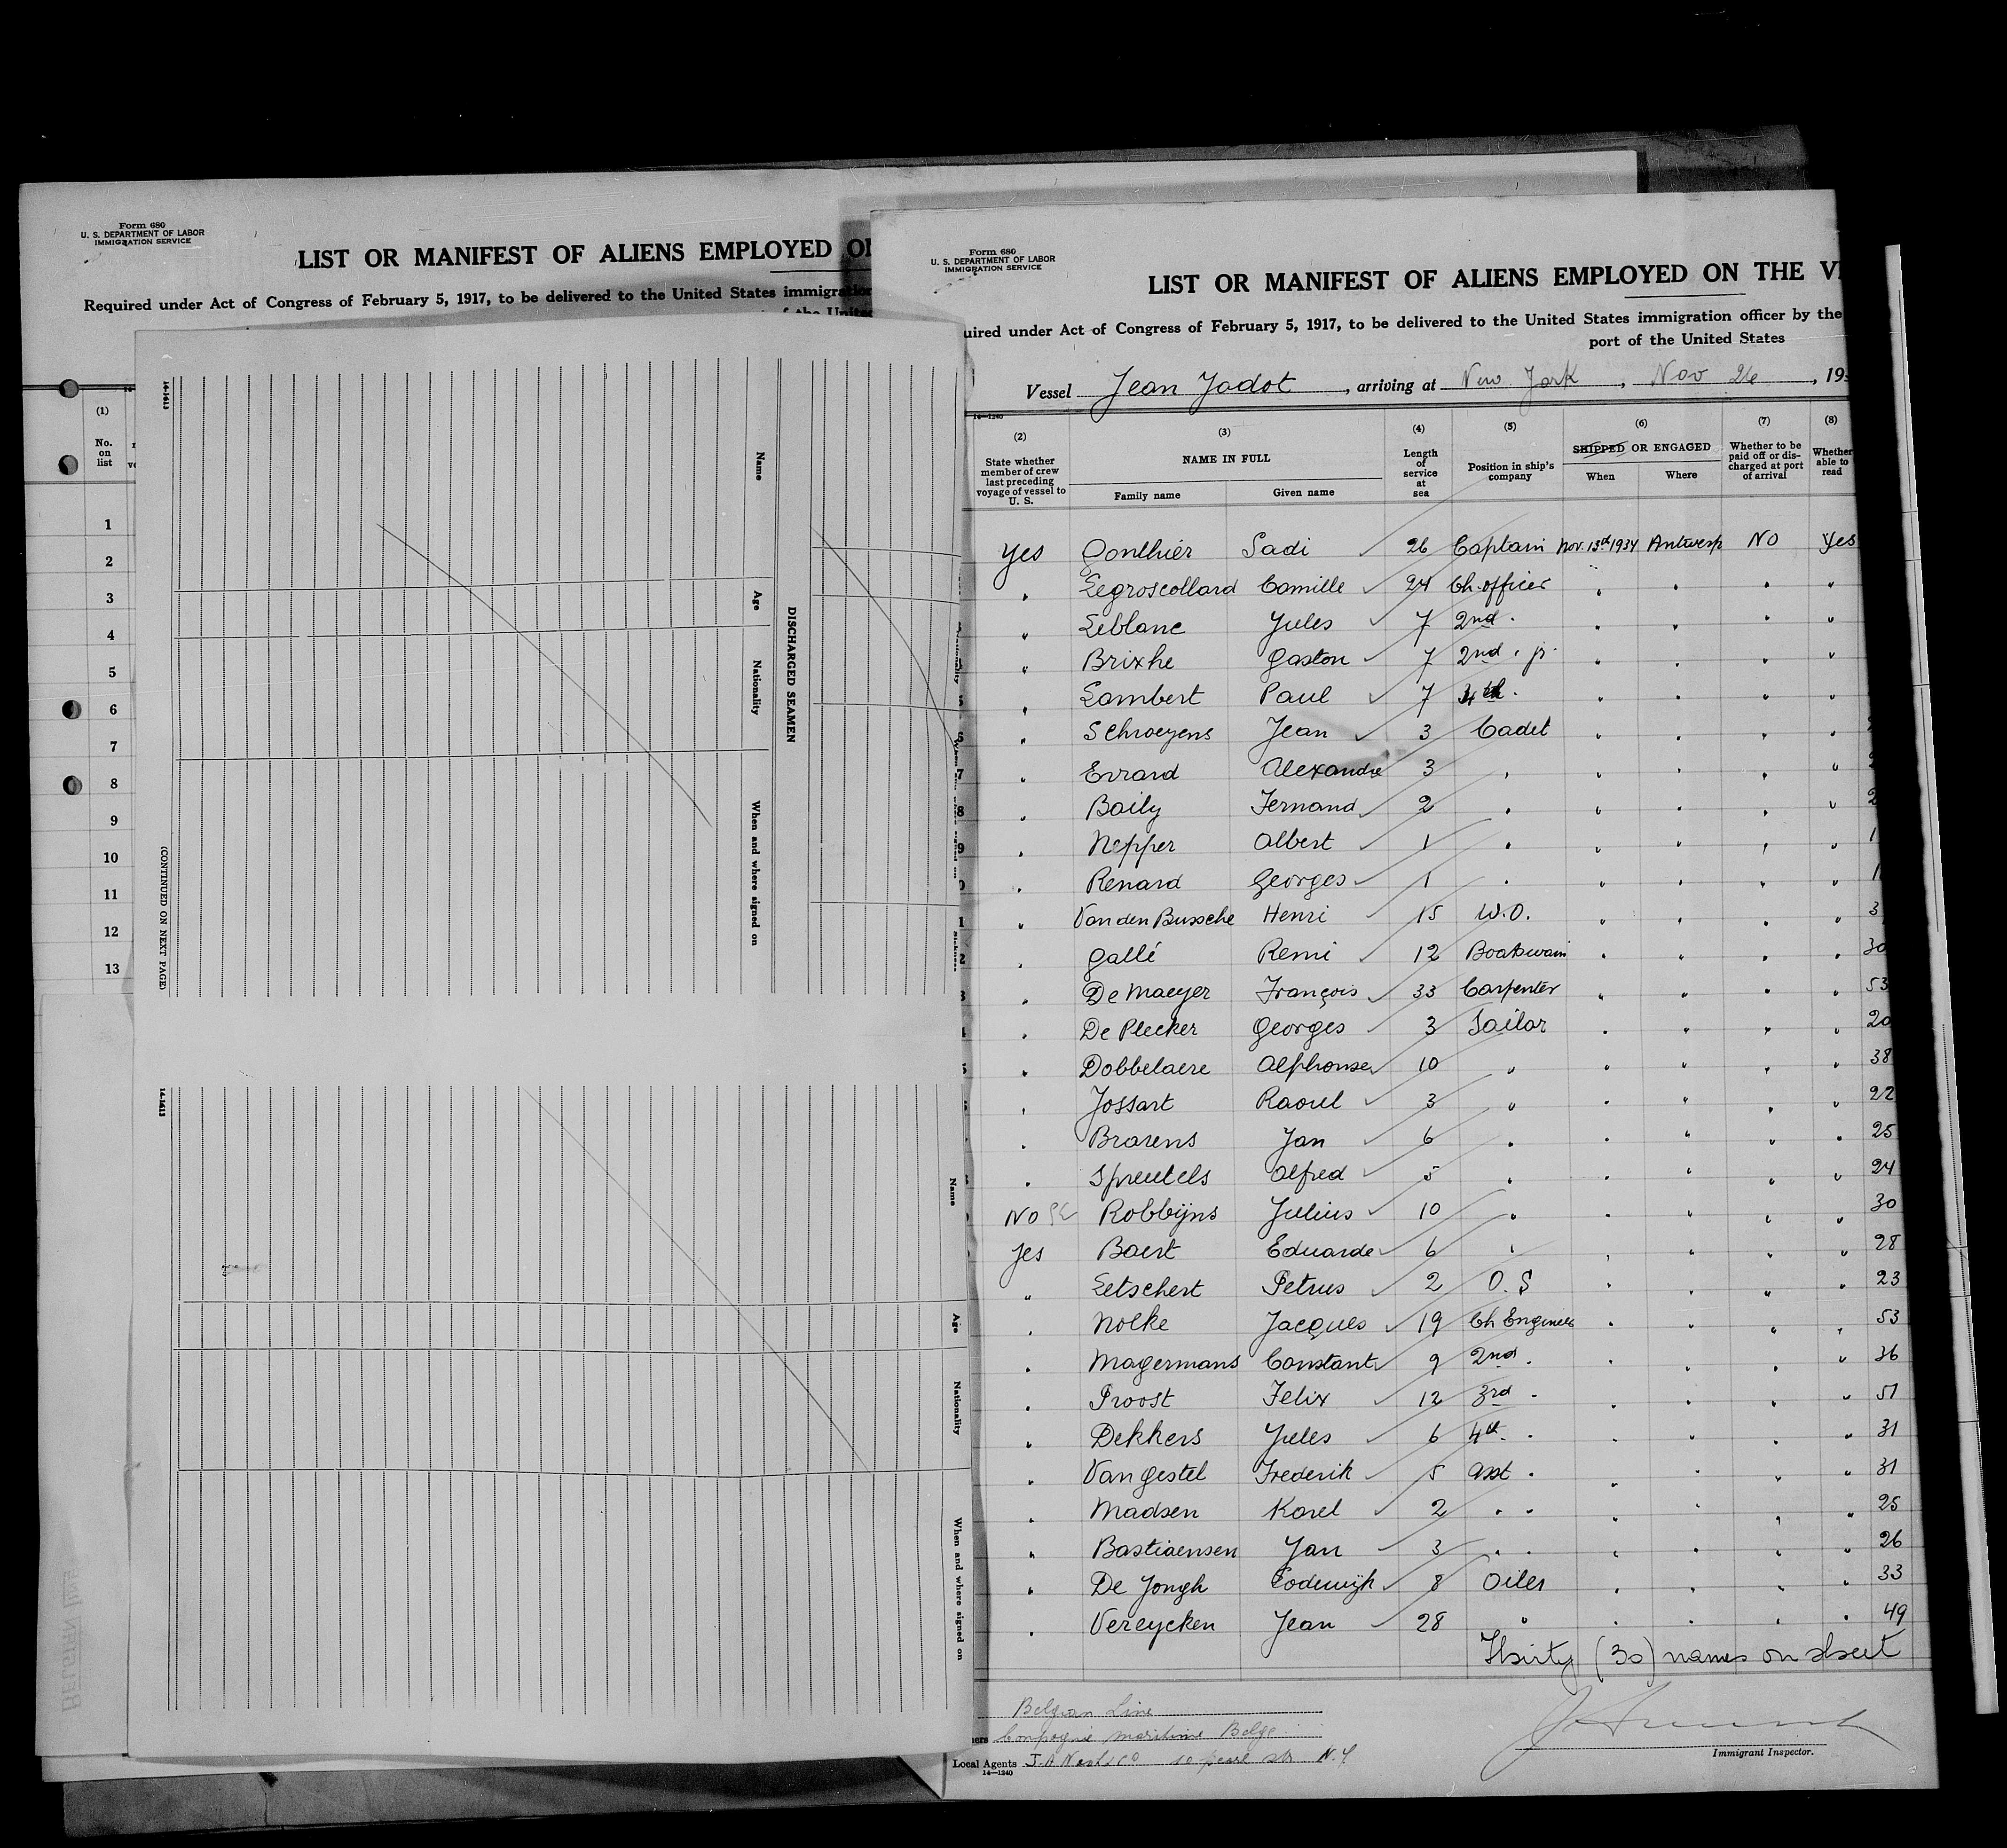 Form 680
U. S. DEPARTMENT OF LABOR
IMMIGRATION SERVICE
LIST OR MANIFEST OF ALIENS EMPLOYED
Required under Act of Congress of February 5, 1917, to be delivered to the United States
(1)
No. on list
1
2
3
4
5
6
7
8
9
10
11
12
13
14-1613
Name
Age
Nationality
When and where signed on
DISCHARGED SEAMEN
(CONTINUED ON NEXT PAGE)
14-1613
Name
Age
Nationality
When and where signed on
BELGIAN LINE
Form 680
U. S. DEPARTMENT OF LABOR
IMMIGRATION SERVICE
LIST OR MANIFEST OF ALIENS EMPLOYED ON THE
under Act of Congress of February 5, 1917, to be delivered to the United States immigration officer by the
port of the United States
Vessel Jean Jadot, arriving at New York, Nov 26, 19
14—1240
(2) (3) (4) (5) (6) (7) (8)
State whether member of crew last preceding voyage of vessel to U. S.
NAME IN FULL
Family name Given name
Length of service at sea
Position in ship's company
SHIPPED OR ENGAGED
When Where
Whether to be paid off or discharged at port of arrival
Whether able to read
Yes Gonthier Sadi 26 Captain Nov. 13th 1934 Antwerp No Yes
" Legroscollard Camille 24 Ch. officer " " " "
" Leblanc Jules 7 2nd " " " " "
" Brixhe Gaston 7 2nd " jr. " " " "
" Lambert Paul 7 4th " " " " "
" Schroeyens Jean 3 Cadet " " " "
" Evrard Alexandre 3 " " " " "
" Baily Fernand 2 " " " " "
" Nepper Albert 1 " " " " "
" Renard Georges 1 " " " " "
" Van den Bussche Henri 15 W.O. " " " "
" Gallé Remi 12 Boatswain " " " " 30
" De Maeyer François 33 Carpenter " " " " 53
" De Plecker Georges 3 Sailor " " " " 20
" Dobbelaere Alphonse 10 " " " " " 38
" Jossart Raoul 3 " " " " " 22
" Brarens Jan 6 " " " " " 25
" Spreutels Alfred 5 " " " " " 24
No Robbijns Julius 10 " " " " " 30
Yes Baert Eduarde 6 " " " " " 28
" Letschert Petrus 2 O.S " " " " 23
" Nolke Jacques 19 Ch Engineer " " " " 53
" Magermans Constant 9 2nd " " " " " 36
" Proost Felix 12 3rd " " " " " 51
" Dekkers Jules 6 4th " " " " " 31
" Van Gestel Frederik 5 Asst " " " " " 31
" Madsen Karel 2 " " " " " " 25
" Bastiaensen Jan 3 " " " " " " 26
" De Jongh Lodewijk 8 Oiler " " " " 33
" Vereycken Jean 28 " " " " " 49
Thirty (30) names on sheet
Belgian Line
Compagnie Maritime Belge
Local Agents pearl str N.Y
14—1240
Immigrant Inspector.